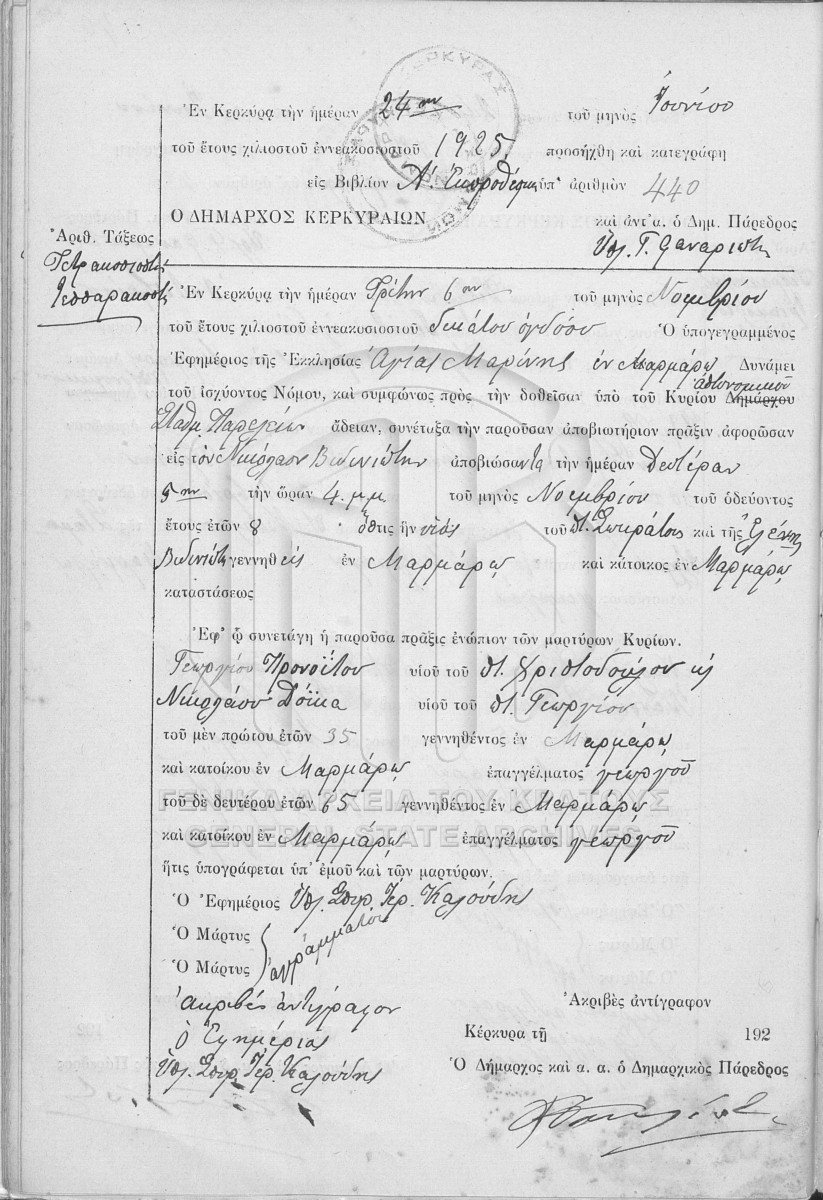 Ἐν Κερκύρᾳ τὴν ἡμέραν 24ην τοῦ μηνὸς Ἰουνίου
τοῦ ἔτους χιλιοστοῦ ἐννεακοσιοστοῦ 1925 προσήχθη καὶ κατεγράφη
εἰς Βιβλίον Α΄. Ἐκπροθέσμ. ὑπ᾽ ἀριθμὸν 440
Ο ΔΗΜΑΡΧΟΣ ΚΕΡΚΥΡΑΙΩΝ καὶ ἀντ᾽ α. ὁ Δημ. Πάρεδρος
Ὑπ. Γ. Φαναριώτης
Ἀριθ. Τάξεως
Τετρακοσιοστὴ
Τεσσαρακοστὴ
Ἐν Κερκύρᾳ τὴν ἡμέραν Τρίτην 6ην τοῦ μηνὸς Νοεμβρίου
τοῦ ἔτους χιλιοστοῦ ἐννεακοσιοστοῦ δεκάτου ὀγδόου Ὁ ὑπογεγραμμένος
Ἐφημέριος τῆς Ἐκκλησίας Ἁγίας Μαρίνης ἐν Μαρμάρῳ Δυνάμει
τοῦ ἰσχύοντος Νόμου, καὶ συμφώνως πρὸς τὴν δοθεῖσαν ὑπὸ τοῦ Κυρίου Δημάρχου ἀστυνομικοῦ
Σταθμ. ἄδειαν, συνέταξα τὴν παροῦσαν ἀποβιωτήριον πρᾶξιν ἀφορῶσαν
εἰς τὸν Νικόλαον Βιδινιώτην ἀποβιώσαντα τὴν ἡμέραν Δευτέραν
5ην τὴν ὥραν 4. μ.μ. τοῦ μηνὸς Νοεμβρίου τοῦ ὁδεύοντος
ἔτους ἐτῶν 8 ὅστις ἦν υἱὸς τοῦ π. Σωκράτους καὶ τῆς Ἑλένης
Βιδινιώτη γεννηθεὶς ἐν Μαρμάρῳ καὶ κάτοικος ἐν Μαρμάρῳ
καταστάσεως
Ἐφ᾽ ᾧ συνετάγη ἡ παροῦσα πρᾶξις ἐνώπιον τῶν μαρτύρων Κυρίων.
Γεωργίου Προνοΐτου υἱοῦ τοῦ π. Χριστοδούλου κ
Νικολάου Δόϊκα υἱοῦ τοῦ π. Γεωργίου
τοῦ μὲν πρώτου ἐτῶν 35 γεννηθέντος ἐν Μαρμάρῳ
καὶ κατοίκου ἐν Μαρμάρῳ ἐπαγγέλματος γεωργοῦ
ΓΕΝΙΚΑ ΑΡΧΕΙΑ ΤΟΥ ΚΡΑΤΟΥΣ
τοῦ δὲ δευτέρου ἐτῶν 65 γεννηθέντος ἐν Μαρμάρῳ
GENERAL STATE ARCHIVES
καὶ κατοίκου ἐν Μαρμάρῳ ἐπαγγέλματος γεωργοῦ
ἥτις ὑπογράφεται ὑπ᾽ ἐμοῦ καὶ τῶν μαρτύρων.
Ὁ Ἐφημέριος Ὑπ. Σπυρ. Ἱερ. Καλούδης
Ὁ Μάρτυς
Ὁ Μάρτυς ἀγράμματοι
Ἀκριβὲς ἀντίγραφον Ἀκριβὲς ἀντίγραφον
Ὁ Ἐφημέριος Κέρκυρα τῇ 192
Ὑπ. Σπυρ. Ἱερ. Καλούδης Ὁ Δήμαρχος καὶ α. α. ὁ Δημαρχικὸς Πάρεδρος